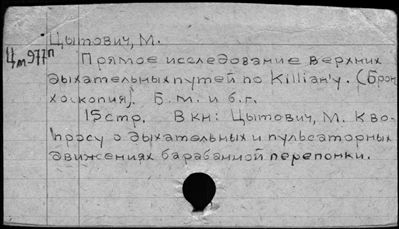 Цытович, М.
Цт977п
Прямое исследование верхних
дыхательных путей по Killian'у. (Брон
хоскопия). Б.м. и б.г.
15 стр. В кн: Цытович, М. К во-
просу о дыхательных и пульсаторных
движениях барабанной перепонки.